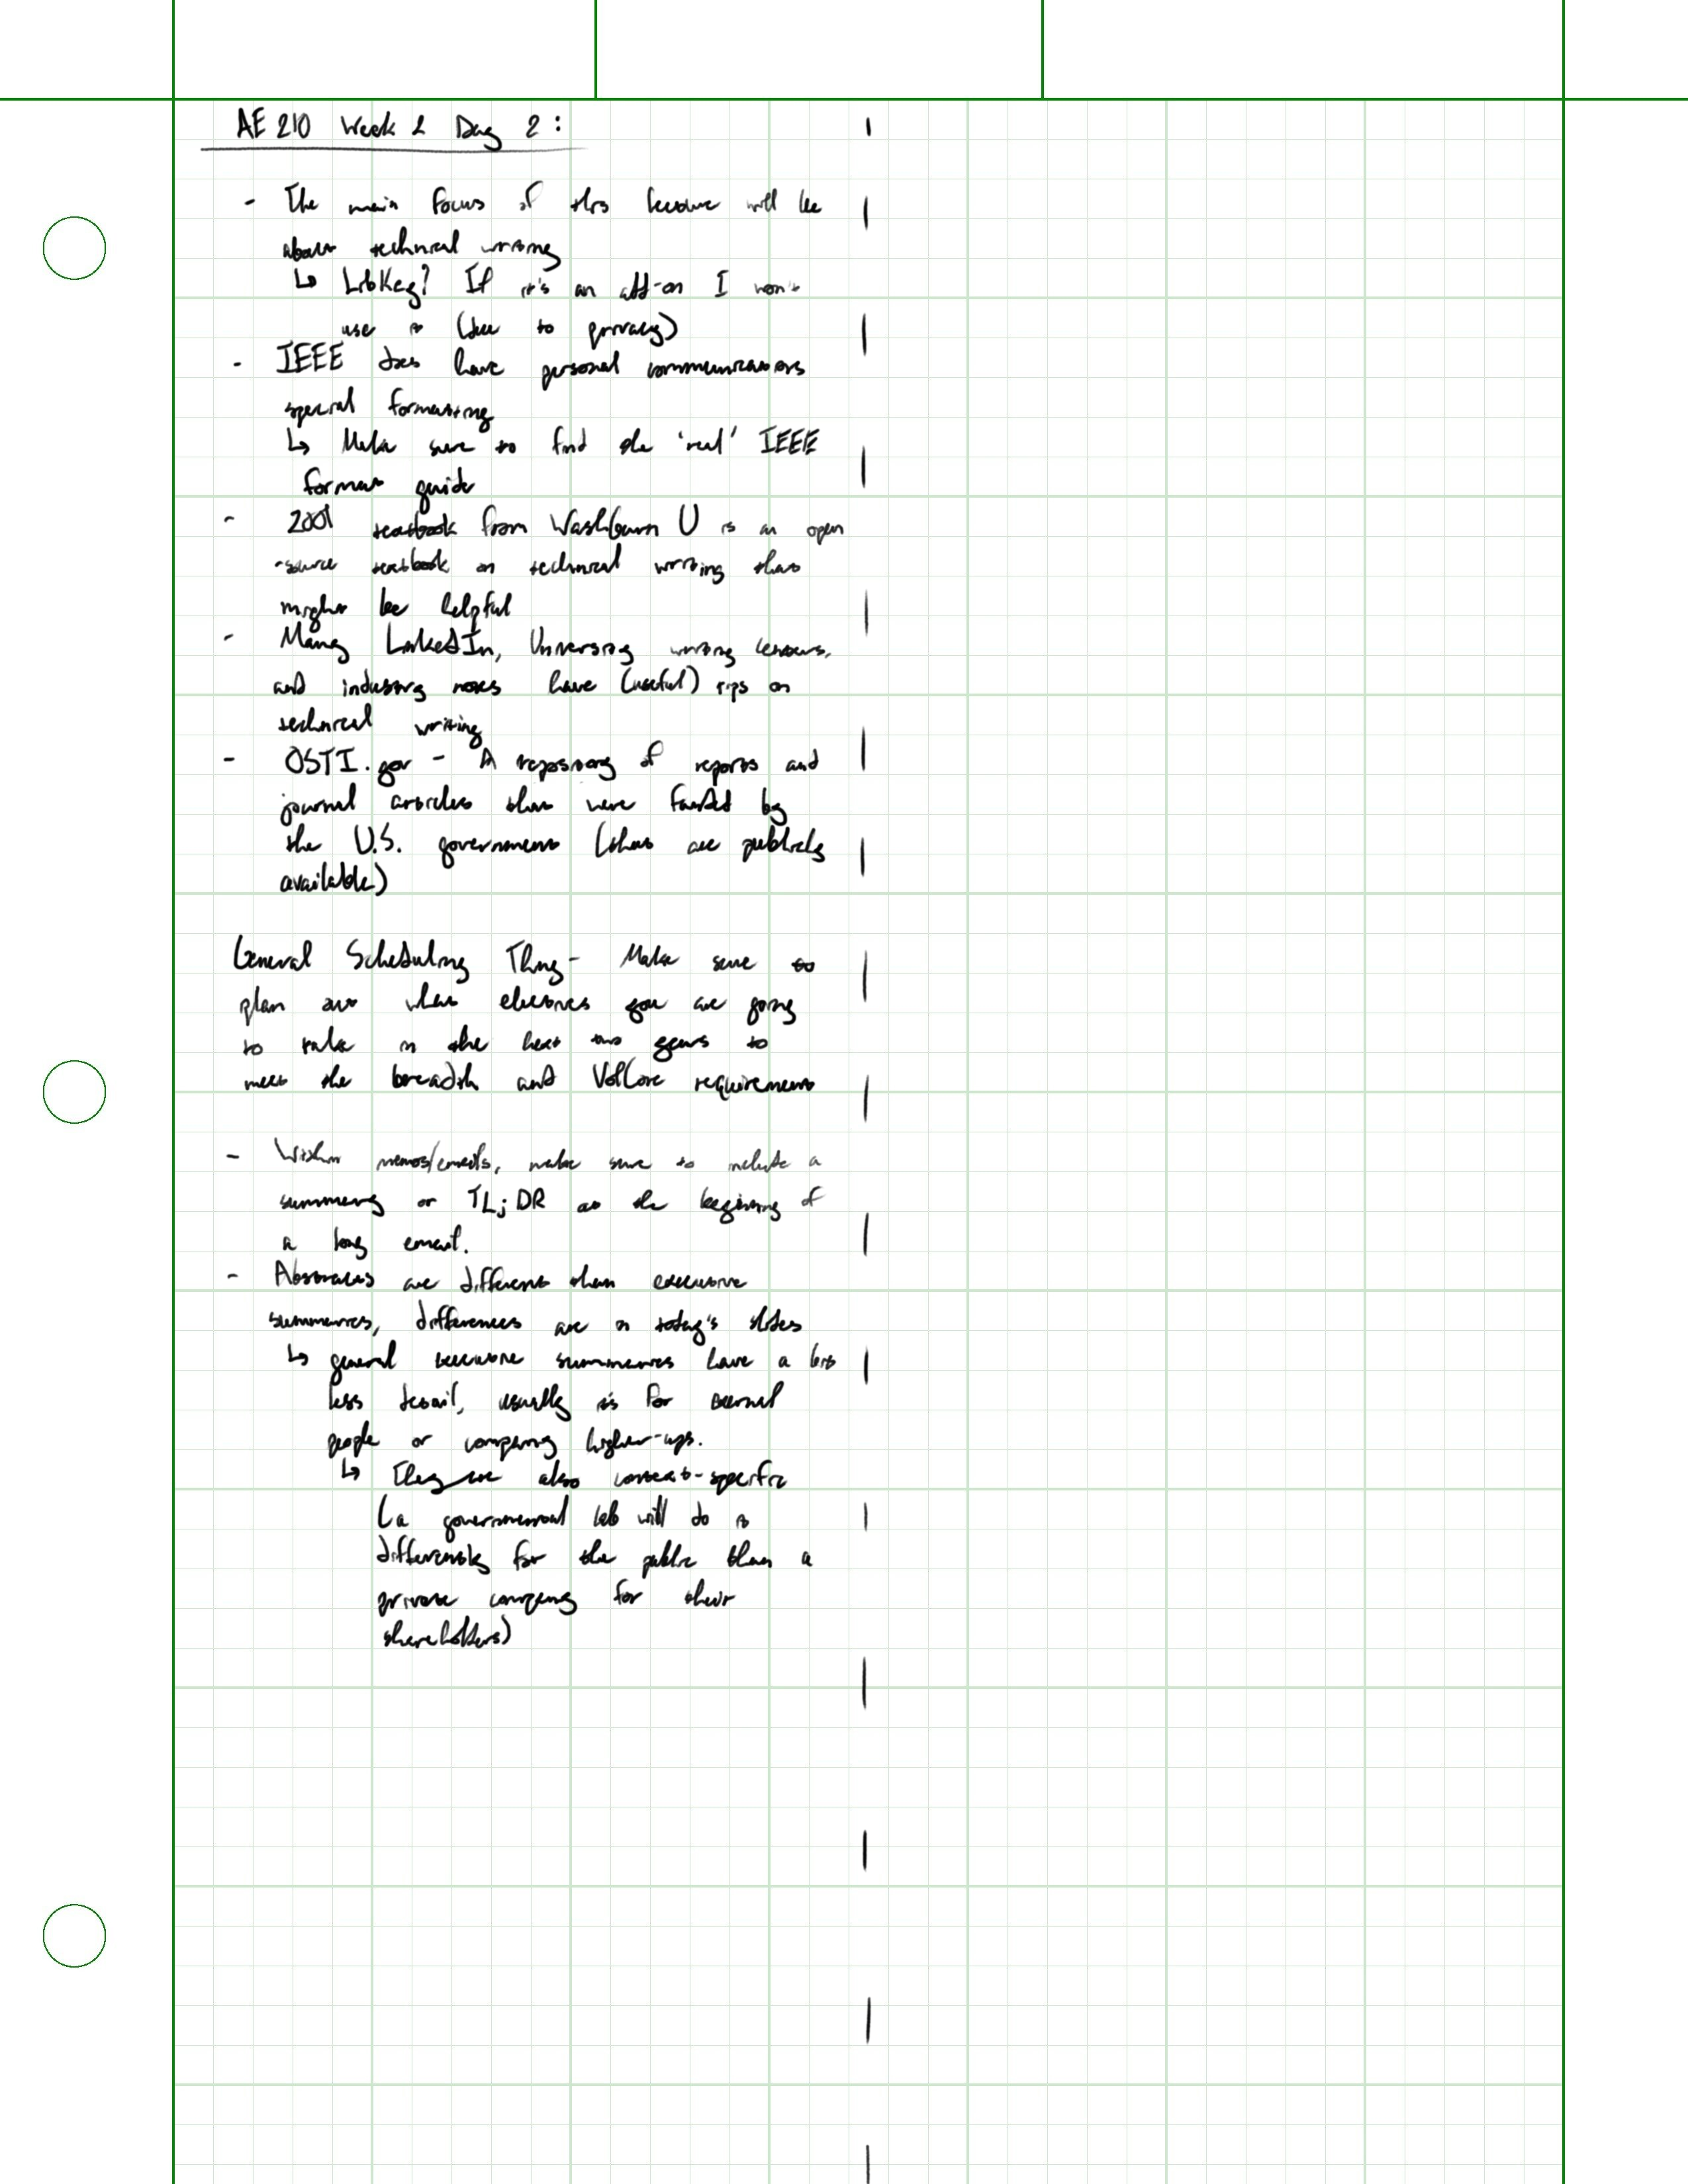 AE 210 Week 2 Day 2:
- The main focus of this lecture will be
about technical writing
↳ LibKey? If it's an add-on I won't
use it (due to privacy)
- IEEE does have personal communications
special formatting
↳ Make sure to find the 'real' IEEE
format guide
- 2001 textbook from Washburn U is an open
-source textbook on technical writing that
might be helpful
- Many LinkedIn, University writing centers,
and industry notes have (useful) tips on
technical writing
- OSTI.gov - A repository of reports and
journal articles that were funded by
the U.S. government (that are publicly
available)
General Scheduling Thing - Make sure to
plan out what electives you are going
to take in the next two years to
meet the breadth and VolCore requirement
- Within memos/emails, make sure to include a
summary or TL;DR at the beginning of
a long email.
- Abstracts are different than executive
summaries, differences are in today's slides
↳ general executive summaries have a bit
less detail, usually is for external
people or company higher-ups.
↳ They are also context-specific
(a governmental lab will do it
differently for the public than a
private company for their
shareholders)